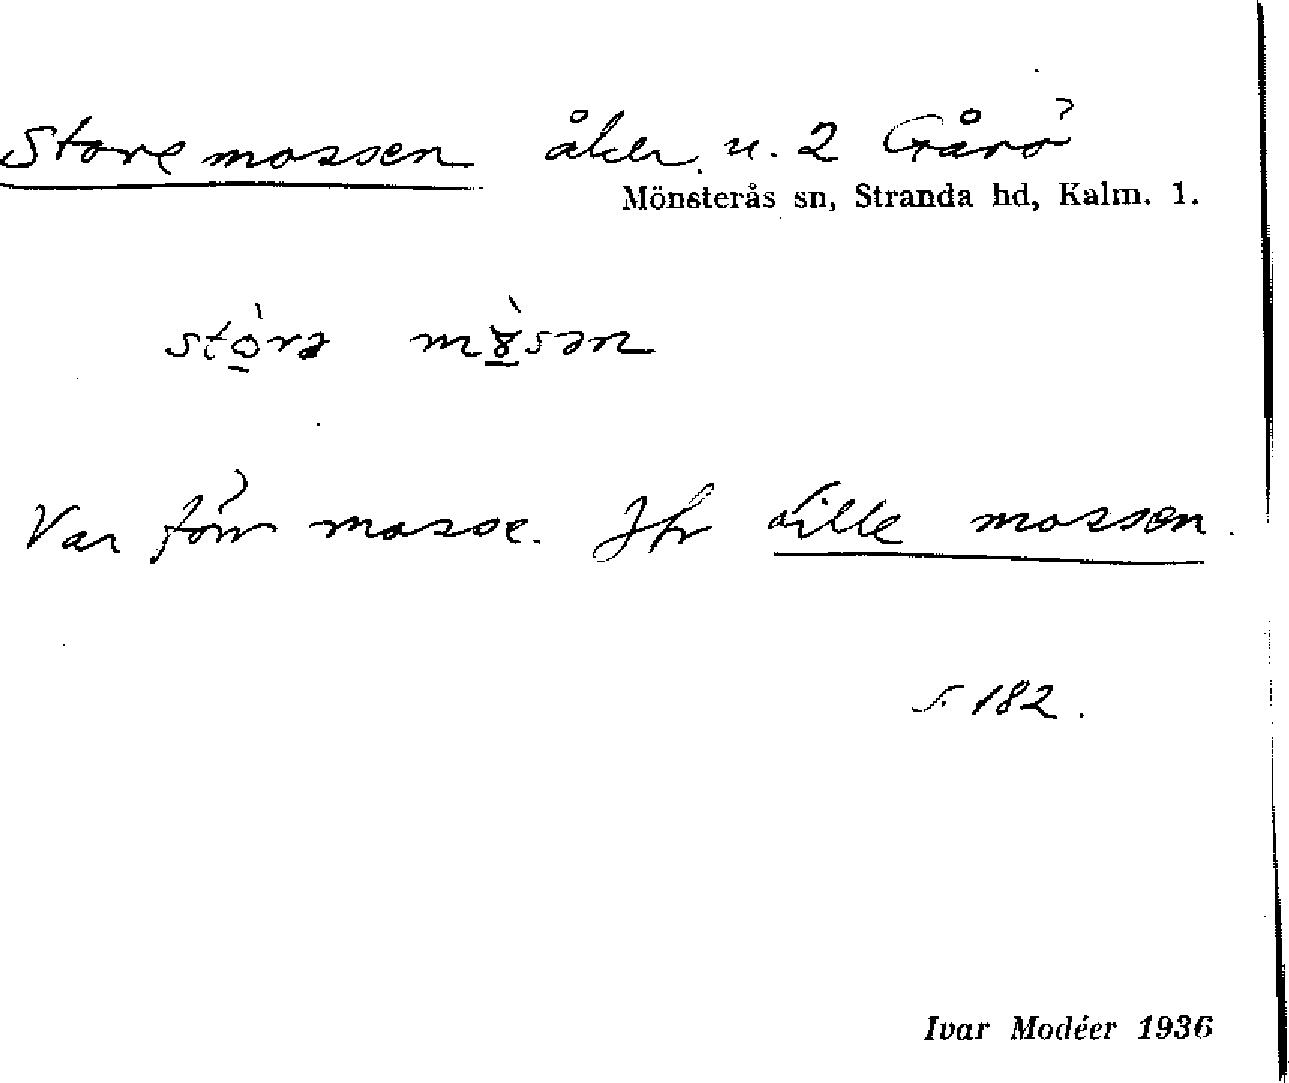 Store mossen åker n. 2 Gårö
Mönsterås sn, Stranda hd, Kalm. l.
stòrə m̀ȣsən
Var förr mosse. Jfr Lille mossen.
s. 182.
Ivar Modéer 1936